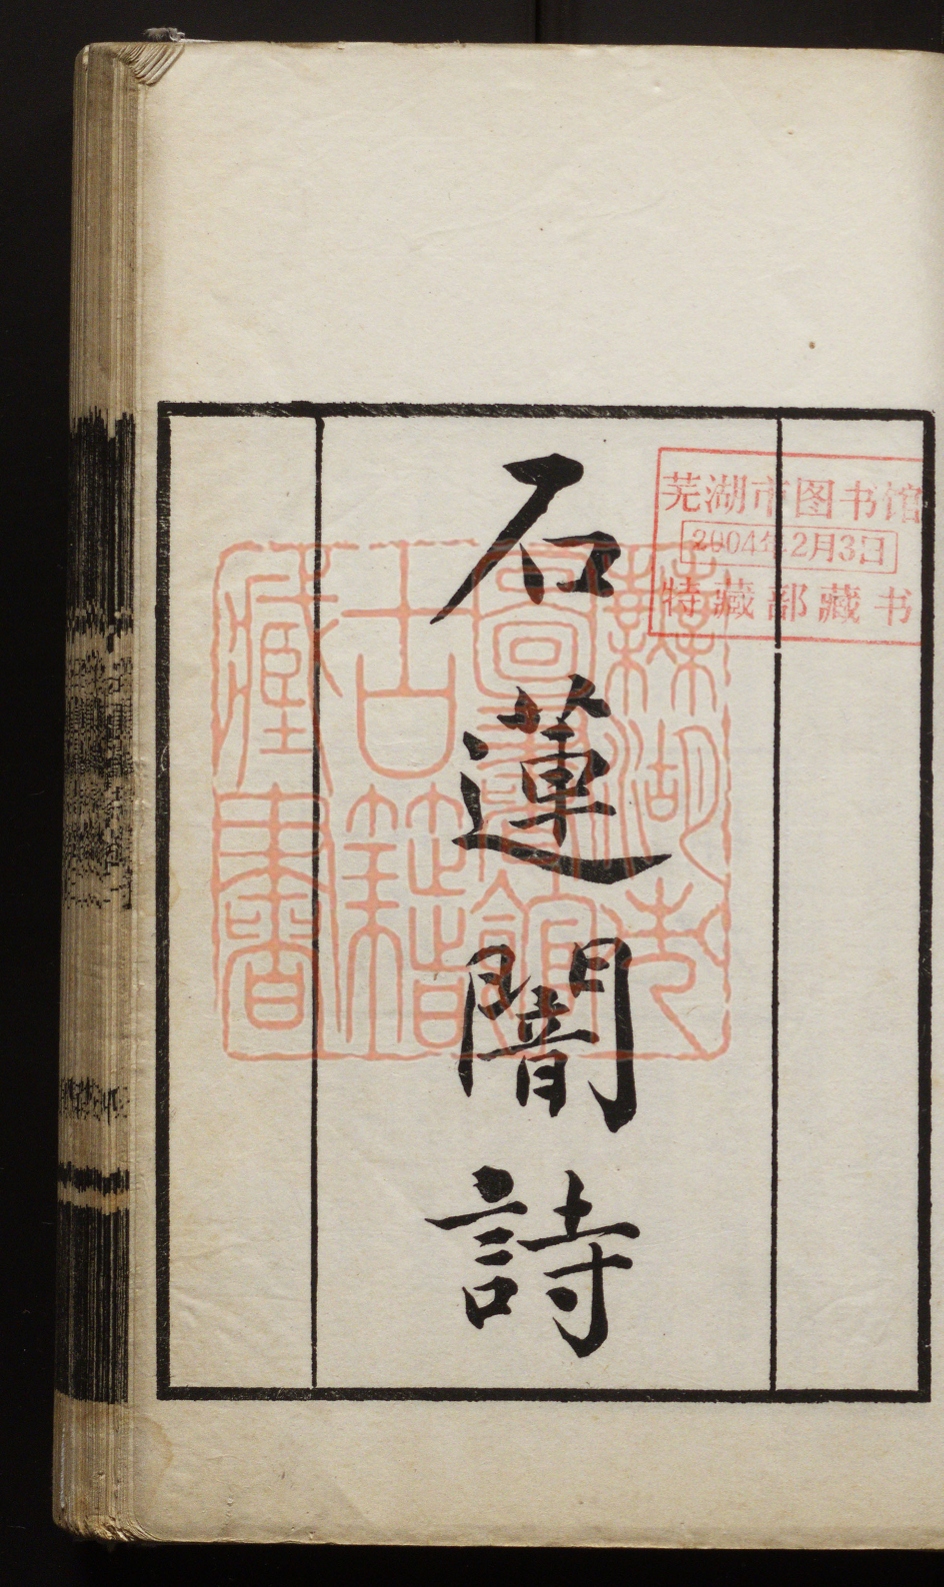 石蓮闇詩
芜湖市图书馆
2004年2月3日
特藏部藏书
蕪湖市
圖書館
古籍
藏書